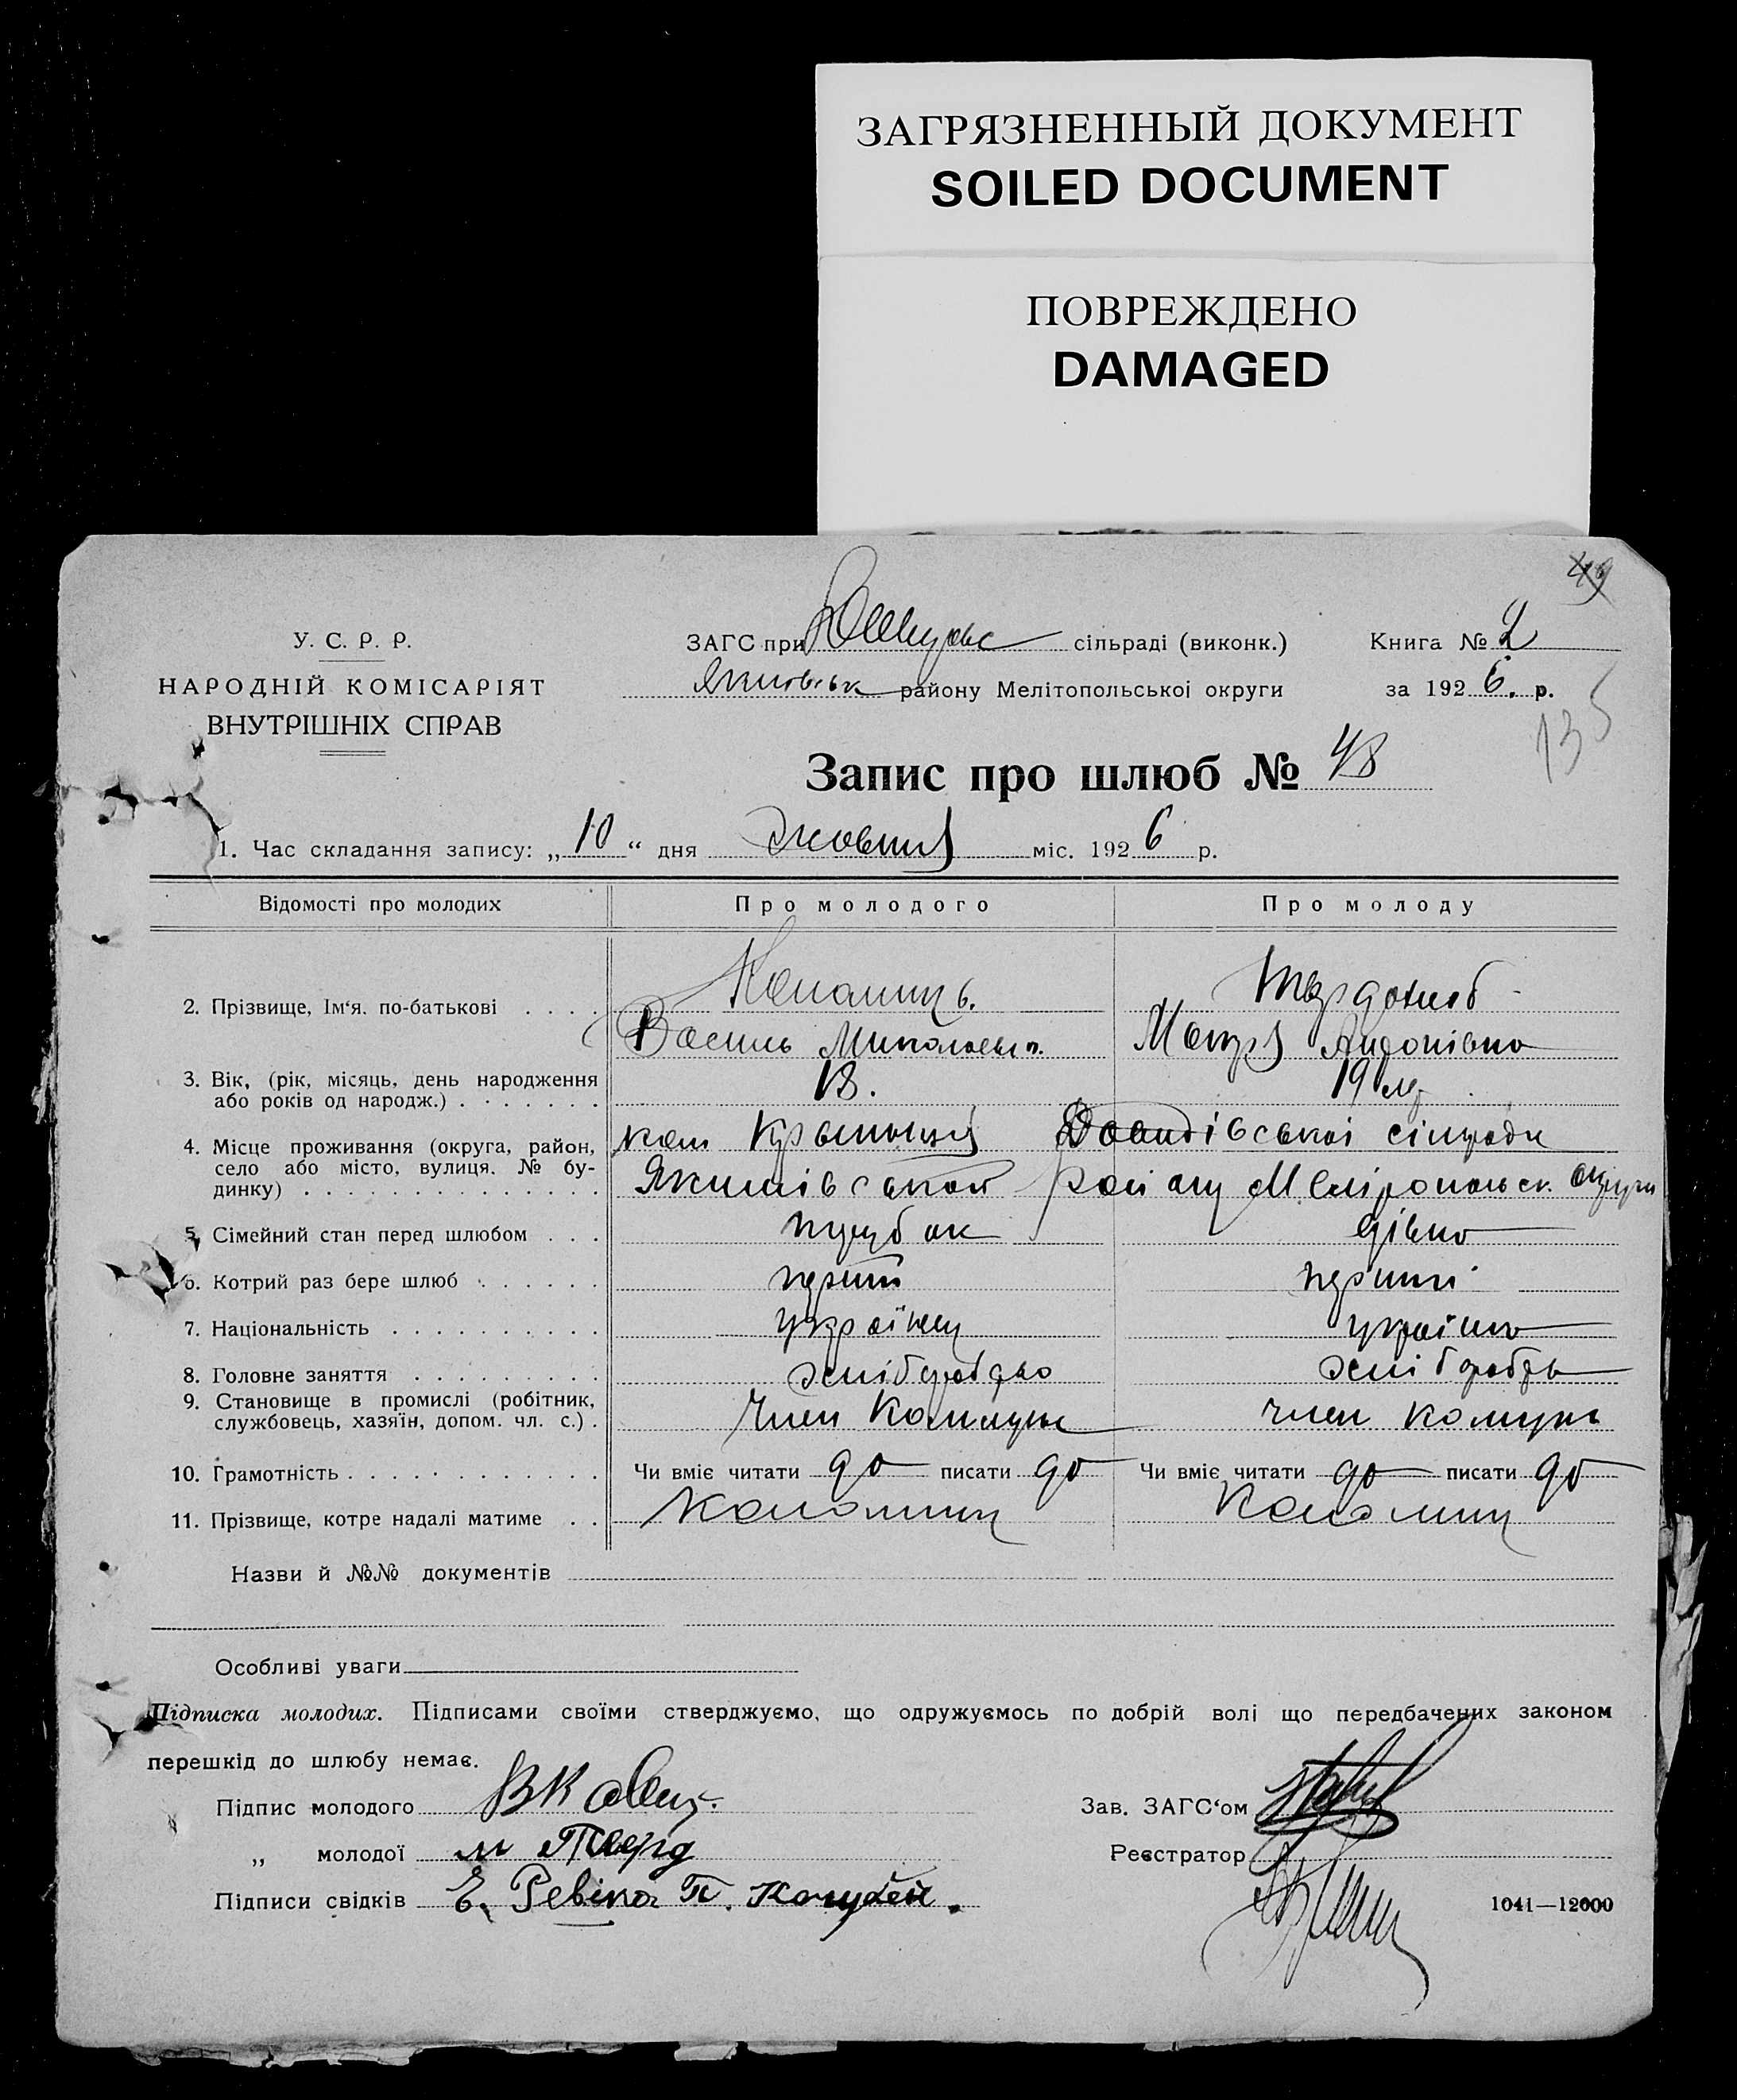 ЗАГРЯЗНЕННЫЙ ДОКУМЕНТ
SOILED DOCUMENT
ПОВРЕЖДЕНО
DAMAGED
49
У. С. Р. Р.
НАРОДНІЙ КОМІСАРІЯТ
ВНУТРІШНІХ СПРАВ
ЗАГС при сільраді (виконк.)
району Мелітопольської округи
Книга № 2
за 1926. р.
135
Запис про шлюб № 48
1. Час складання запису: „10“ дня жовтня міс. 1926 р.
Відомості про молодих Про молодого Про молоду
2. Прізвище, Ім‘я. по-батькові
Василь Антонівна
3. Вік, (рік, місяць, день народження або років од народж.) 18. 19 л.
4. Місце проживання (округа, район, село або місто, вулиця. № будинку)
сільради
Якимівської району Мелітопольськ. округи
5. Сімейний стан перед шлюбом парубок дівка
6. Котрий раз бере шлюб перший перший
7. Національність українец українка
8. Головне заняття
9. Становище в промислі (робітник, службовець, хазяїн, допом. чл. с.) Член Комуни член комуни
10. Грамотність Чи вміє читати до писати до Чи вміє читати до писати до
11. Прізвище, котре надалі матиме Коломиец Коломиец
Назви й №№ документів
Особливі уваги
Підписка молодих. Підписами своїми стверджуємо, що одружуємось по добрій волі що передбачених законом
перешкід до шлюбу немає.
Підпис молодого
„ молодої м Тверд
Підписи свідків Е. Ревіка П. Кочубей.
Зав. ЗАГС‘ом
Реєстратор
1041—12000